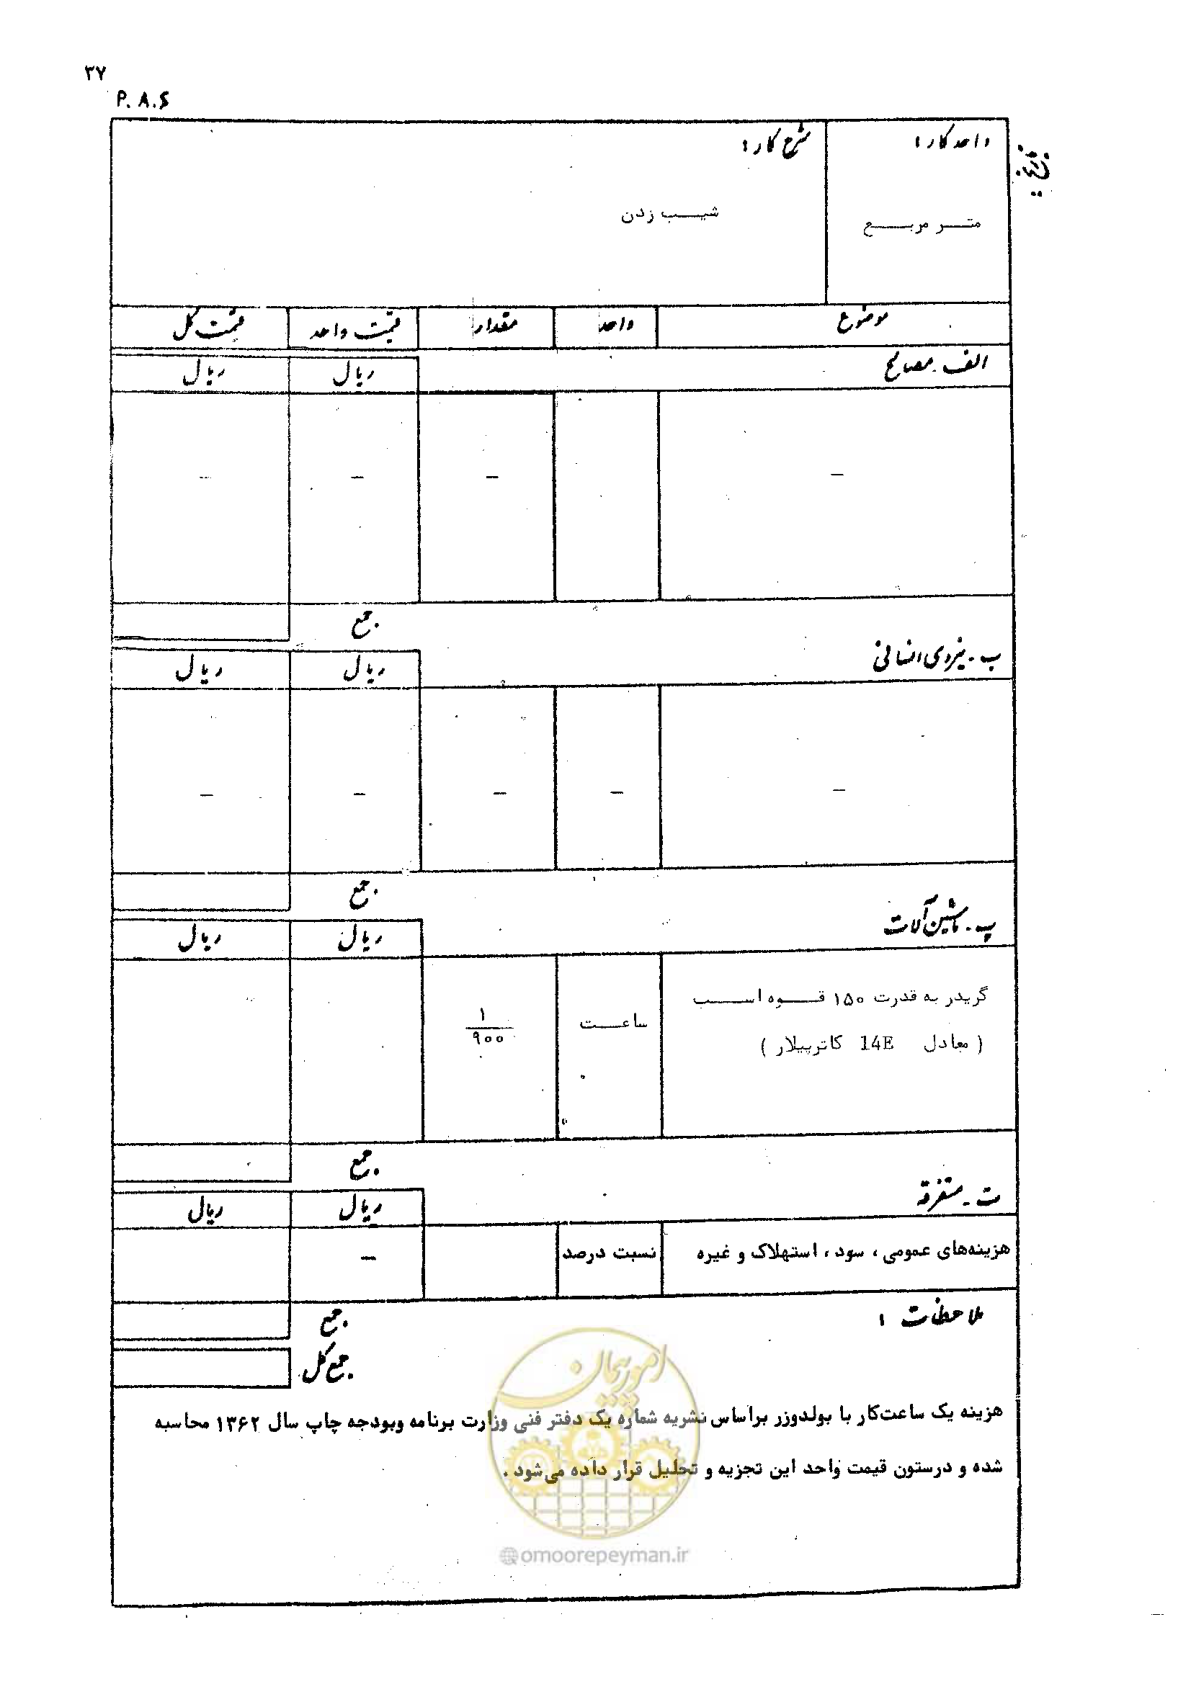 ۳۷
P. ۸.۶
واحد کار :
شرح کار :
متر مربع
شیب زدن
موضوع واحد مقدار قیمت واحد قیمت کل
الف - مصالح ریال ریال
– – – –
جمع
ب - نیروی انسانی ریال ریال
– – – – –
جمع
پ - ماشین آلات ریال ریال
گریدر به قدرت ۱۵۰ قوه اسب ساعت ۱/۹۰۰
( معادل 14E کاترپیلار )
جمع
ت - متفرقه ریال ریال
هزینه‌های عمومی ، سود ، استهلاک و غیره نسبت درصد –
ملاحظات : جمع
جمع کل
هزینه یک ساعت‌کار با بولدوزر براساس نشریه شماره یک دفتر فنی وزارت برنامه وبودجه چاپ سال ۱۳۶۲ محاسبه
شده و درستون قیمت واحد این تجزیه و تحلیل قرار داده می‌شود .
امور پیمان
@omoorepeyman.ir